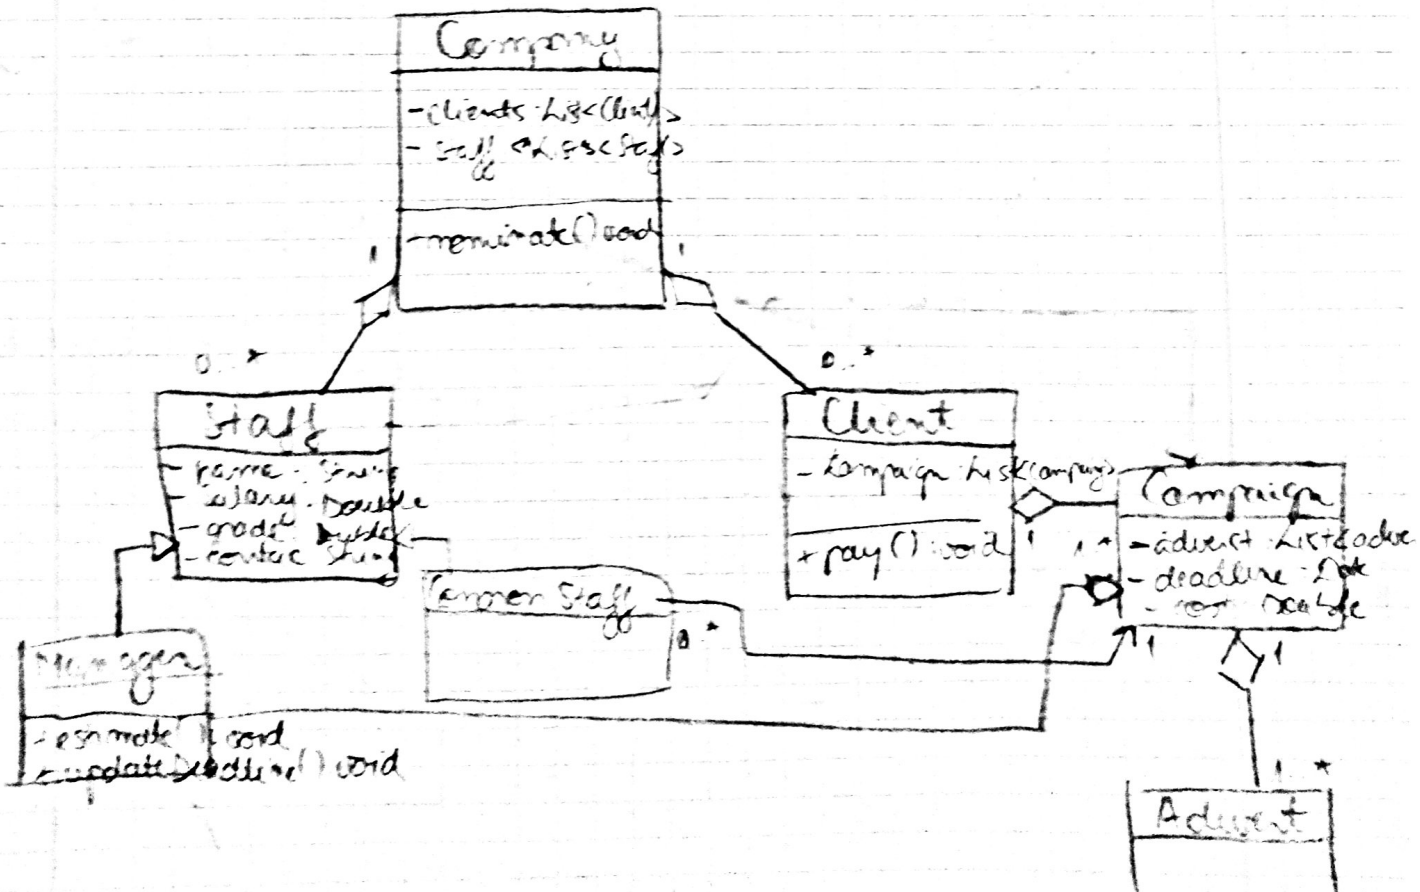 Company
- clients : List<Client>
- staff : List<Staff>
- nominate() void
1
1
0..*
0..*
Staff
- name : String
- salary : Double
- grade :
- String
Client
- Campaign : List<Campaign>
+ pay() : void
1
1..*
Campaign
- advert : List<adve
- deadline : Date
- cost : Double
Common Staff
0..*
1
1
Manager
- estimate() void
+ updateDeadline() void
1..*
Advert